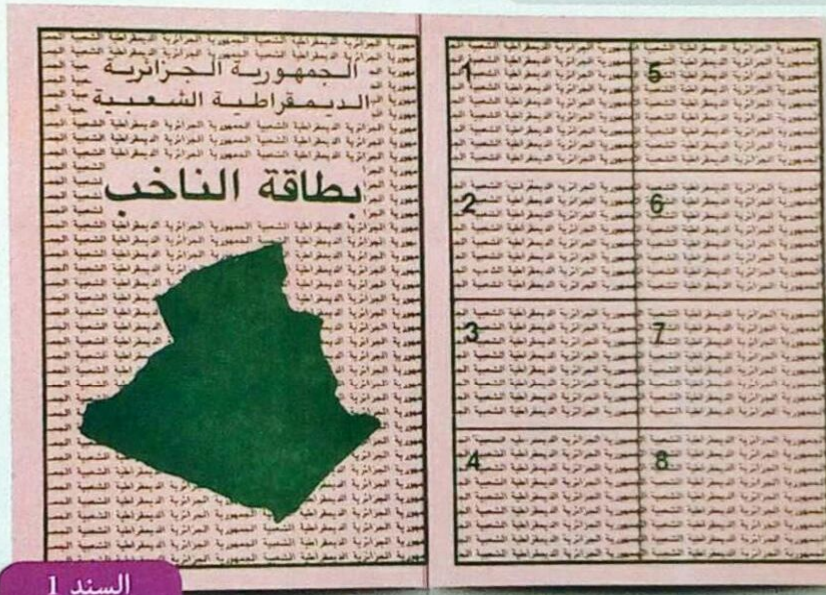 الجمهورية الجزائرية
الديمقراطية الشعبية
بطاقة الناخب
1
5
2
6
3
7
4
8
السند 1